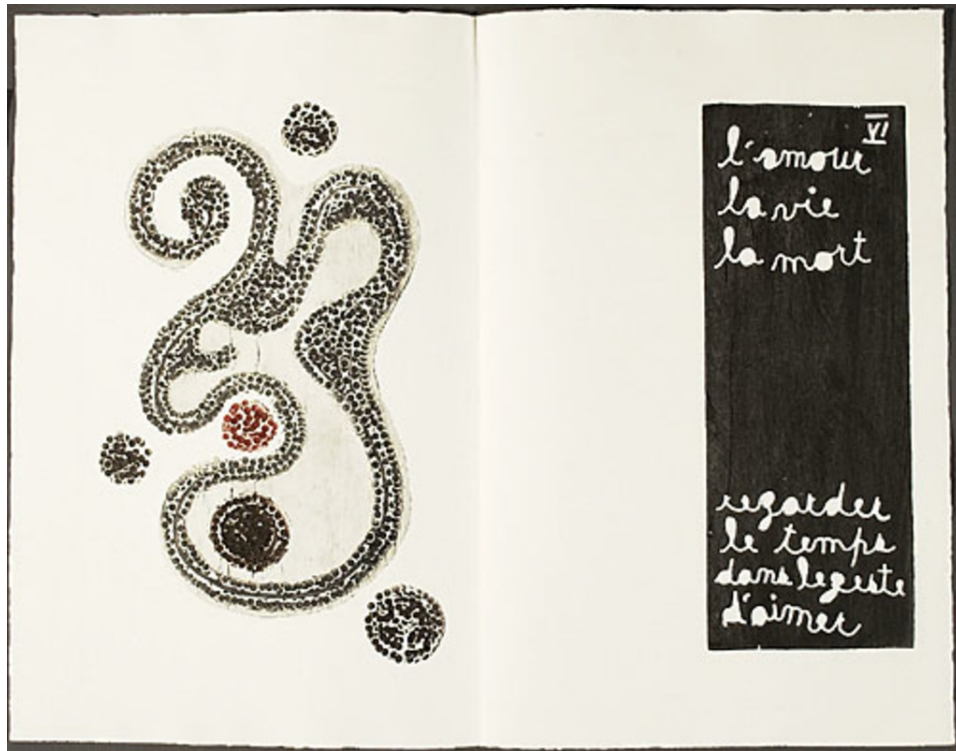 VI
l'amour
la vie
la mort
regarder
le temps
dans le geste
d'aimer